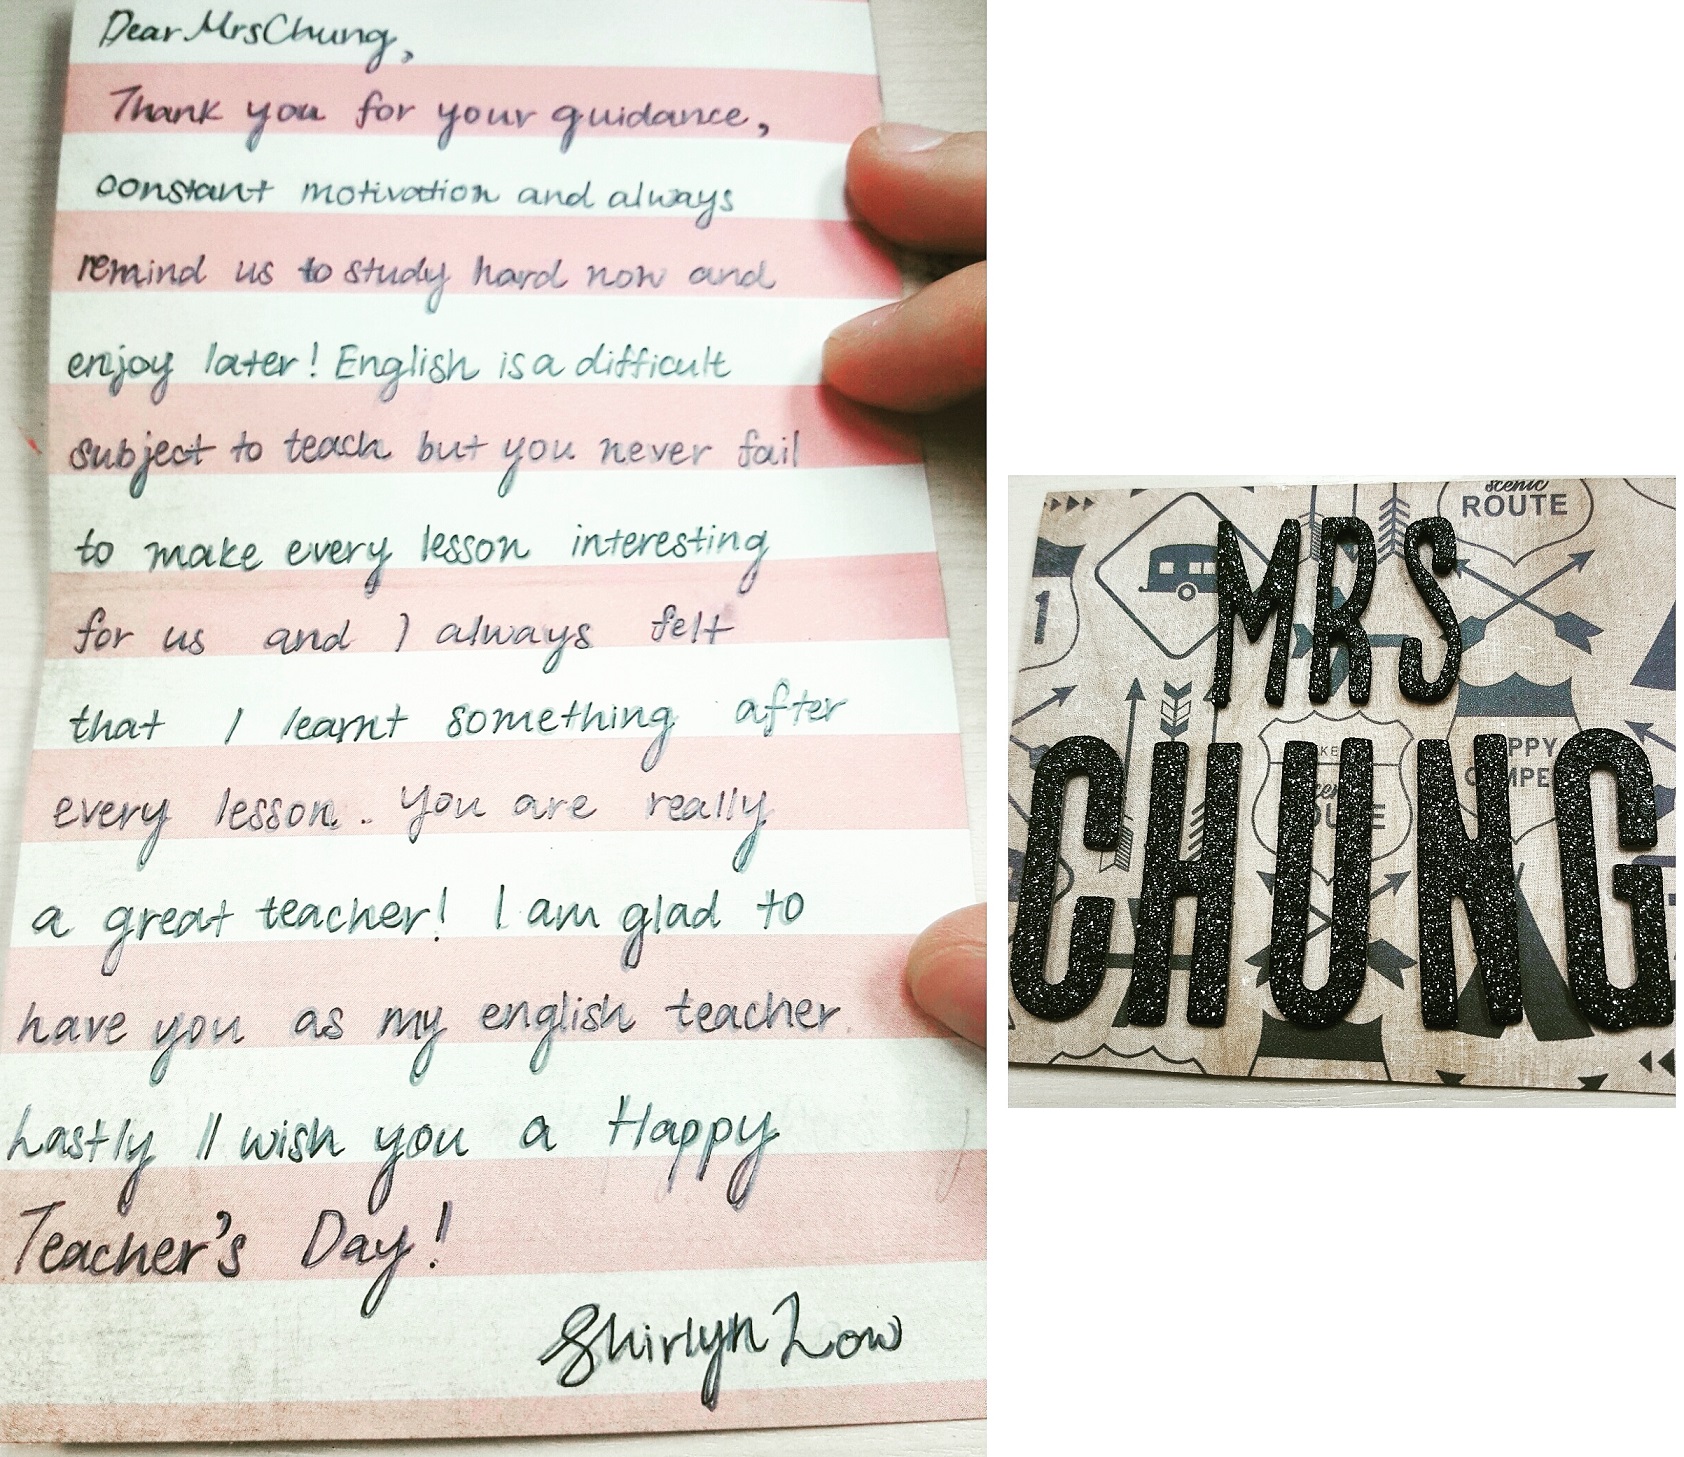 Dear Mrs Chung,
Thank you for your guidance,
constant motivation and always
remind us to study hard now and
enjoy later! English is a difficult
subject to teach but you never fail
to make every lesson interesting
for us and I always felt
that I learnt something after
every lesson. You are really
a great teacher! I am glad to
have you as my english teacher.
Lastly I wish you a Happy
Teacher's Day!
Shirlyn Low
scenic
ROUTE
MRS
1
CHUNG